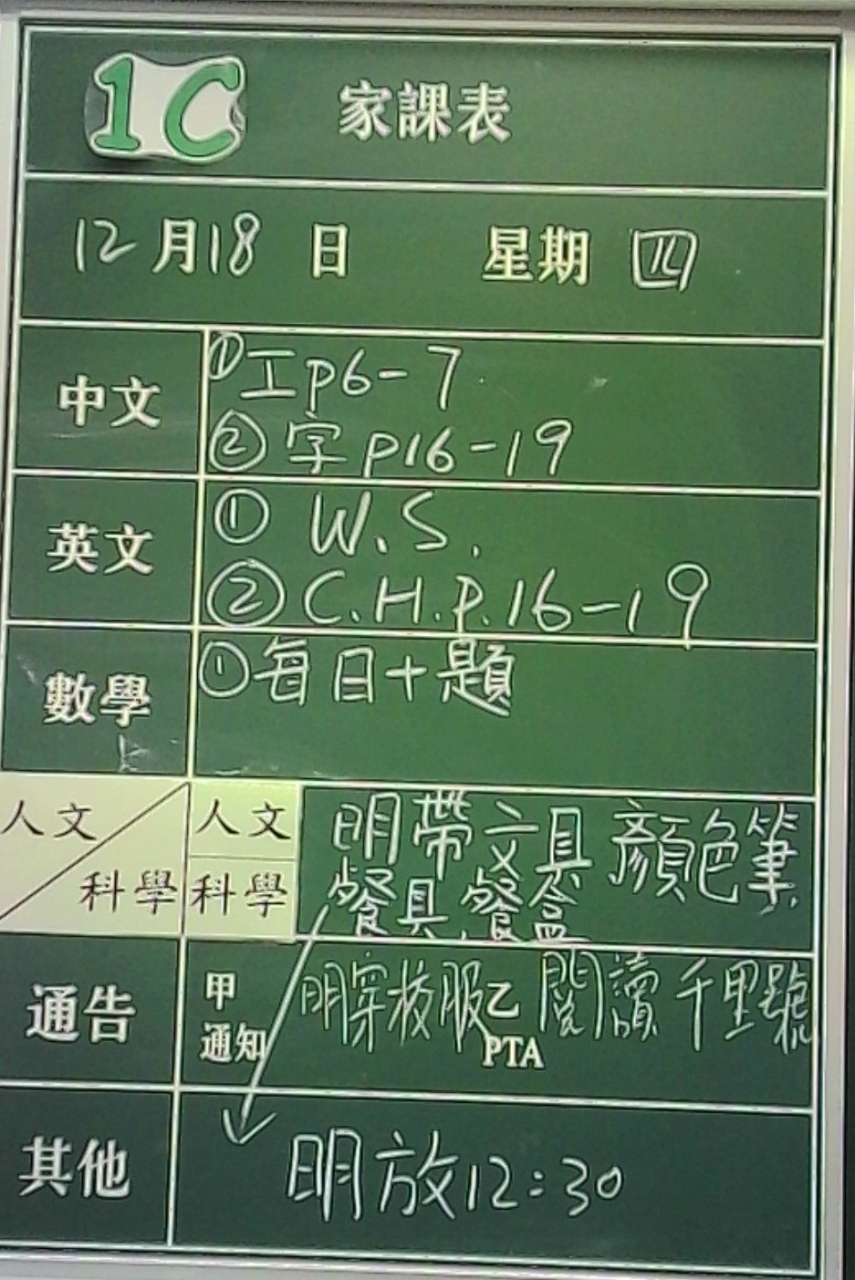 1C 家課表
12月18日 星期四
中文 ①工p6-7
②字p16-19
英文 ① W.S.
②C.H.P.16-19
數學 ①每日十題
人文 科學 人文 明帶文具 顏色筆
科學 餐具、餐盒
通告 甲 通知 明穿校服 乙 PTA 閱讀千里號
其他 明放12:30